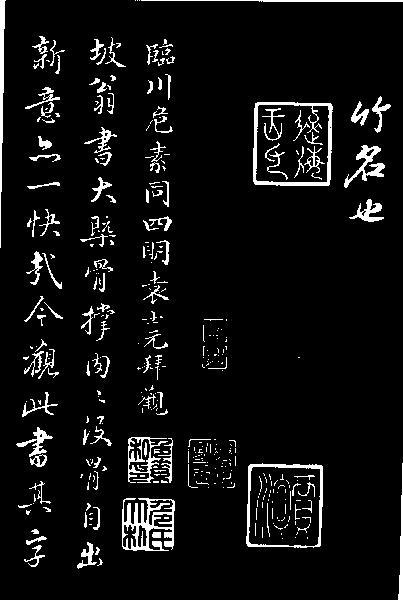 竹名也
臨川危素同四明袁士元拜觀
坡翁書大槩骨撑肉肉没骨自出
新意亦一快哉今觀此書其字
危氏